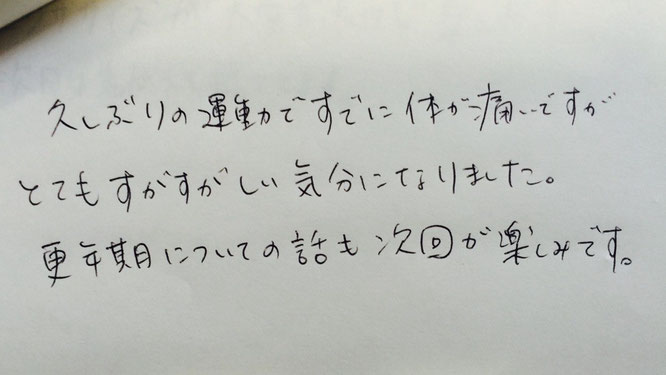 久しぶりの運動ですでに体が痛いですが
とてもすがすがしい気分になりました。
更年期についての話も次回が楽しみです。